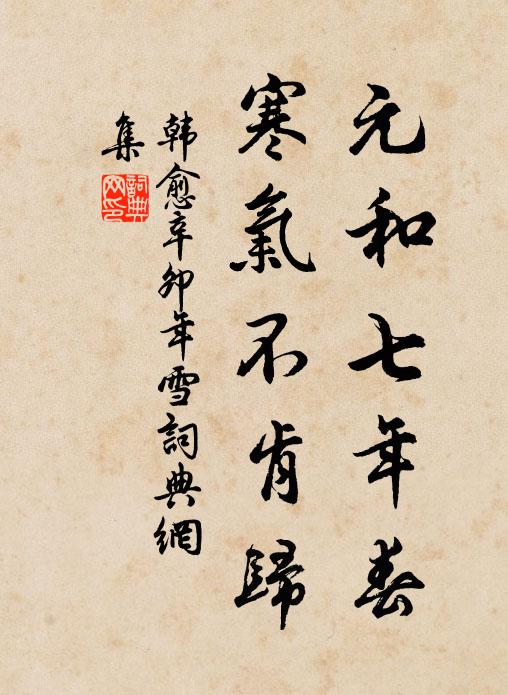 元和七年春
寒氣不肯歸
韩愈辛卯年雪詞典網
集
詞典
网印